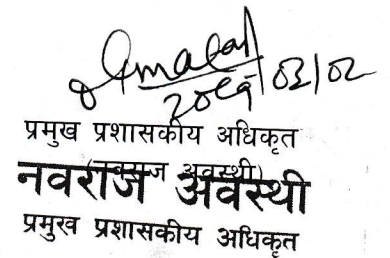 प्रमुख प्रशासकीय अधिकृत
(नवराज अवस्थी)
नवराज अवस्थी
प्रमुख प्रशासकीय अधिकृत